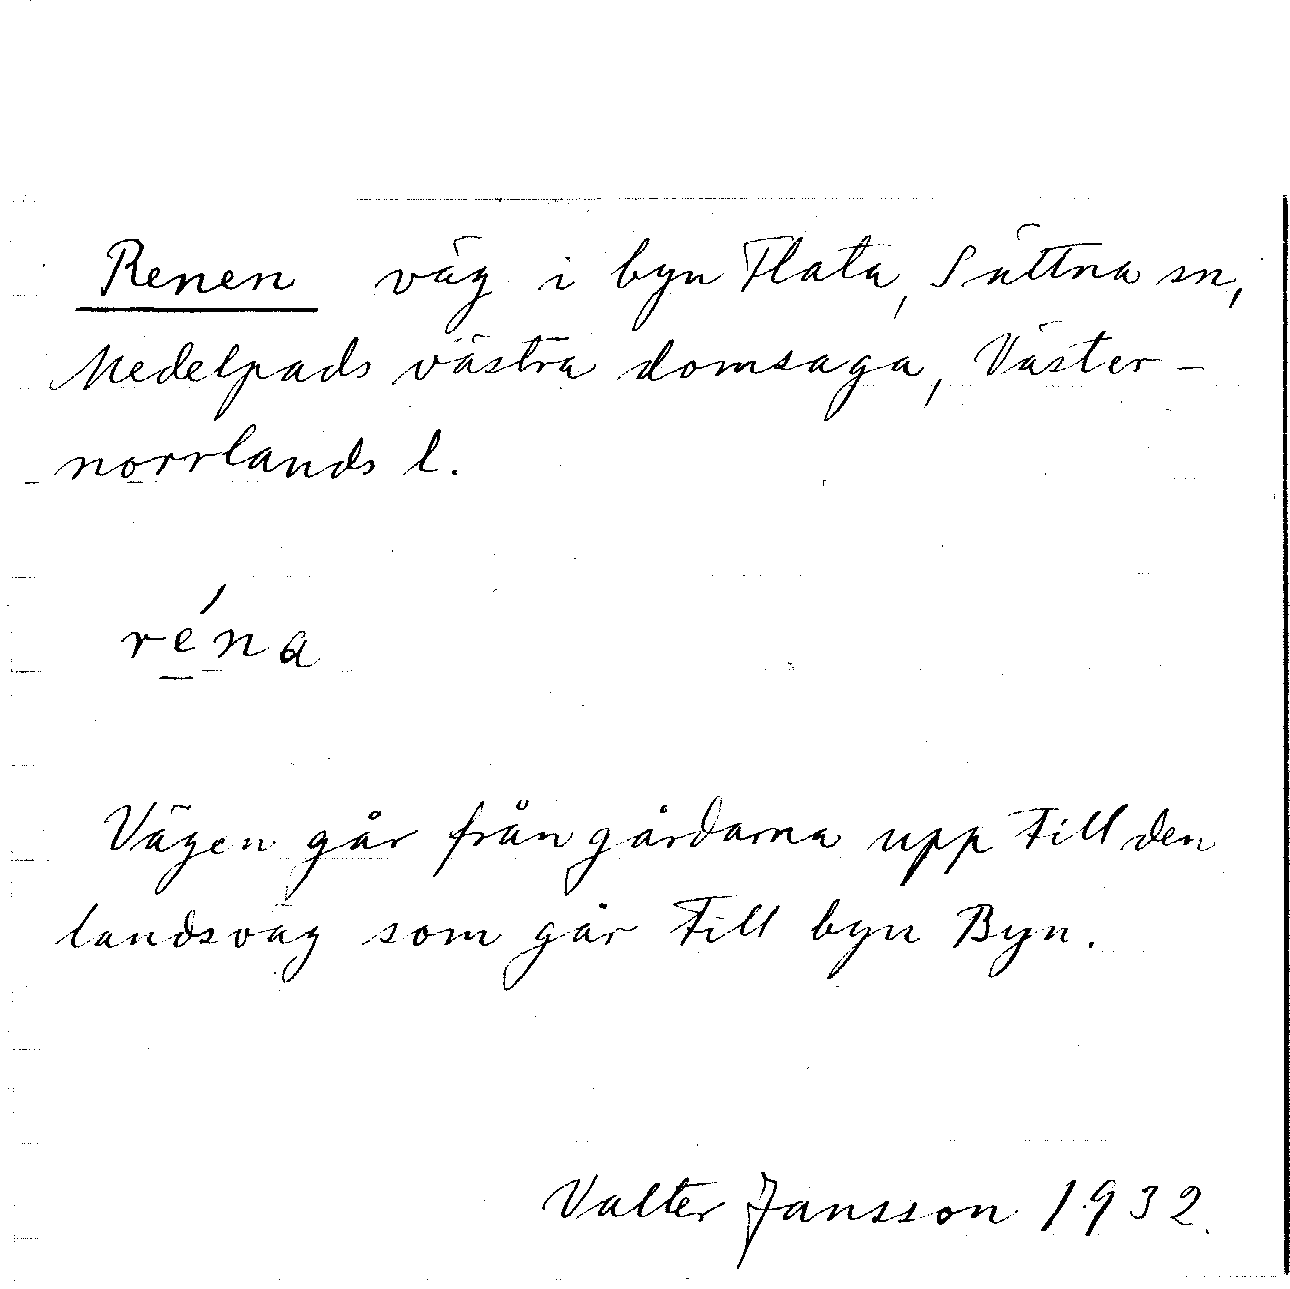 Renen väg i byn Flata, Sättna sn,
Medelpads västra domsaga, Väster-
norrlands l.
réna
Vägen går från gårdarna upp till den
landsväg som går till byn Byn.
Valter Jansson 1932.